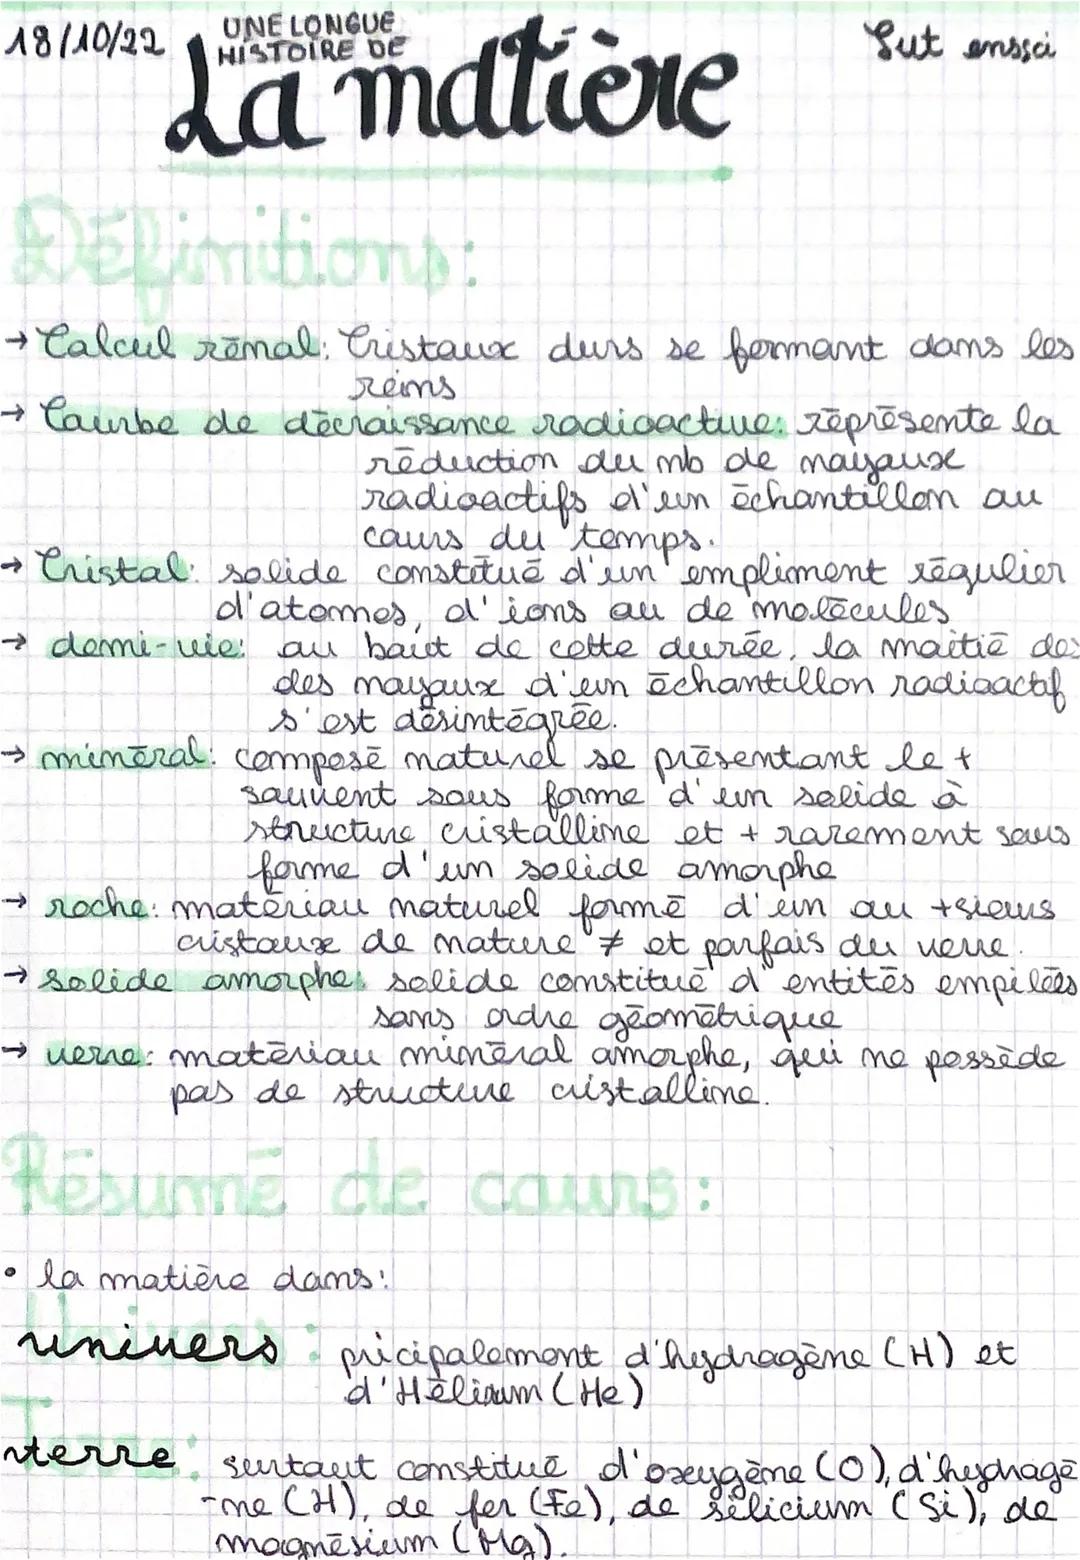 18/10/22
UNE LONGUE
HISTOIRE DE
La matière
Définitions:
→ Calcul rénal: Cristaux durs se formant dans les
reins
→ Courbe de décroissance radioactive: réprésente la
réduction du nb de noyaux
radioactifs d'un échantillon au
cours du temps.
→ Cristal: solide constitué d'un empliment régulier
d'atomes, d'ions ou de molécules
→ demi-vie: au bout de cette durée, la moitié des
des noyaux d'un échantillon radioactif
s'est désintégrée.
→ minéral: composé naturel se présentant le +
souvent sous forme d'un solide à
structure cristalline et + rarement sous
forme d'un solide amorphe
→ roche: matériau naturel formé d'un ou +sieurs
cristaux de nature ≠ et parfois du verre.
→ solide amorphe: solide constitué d'entités empilées
sans ordre géométrique
→ verre: matériau minéral amorphe, qui ne possède
pas de structure cristalline.
Résumé de cours:
• la matière dans:
univers : pricipalement d'hydrogène (H) et
d'Hélium (He)
terre : surtout constitué d'oxygène (O), d'hydrogè
-ne (H), de fer (Fe), de silicium (Si), de
magnésium (Mg).